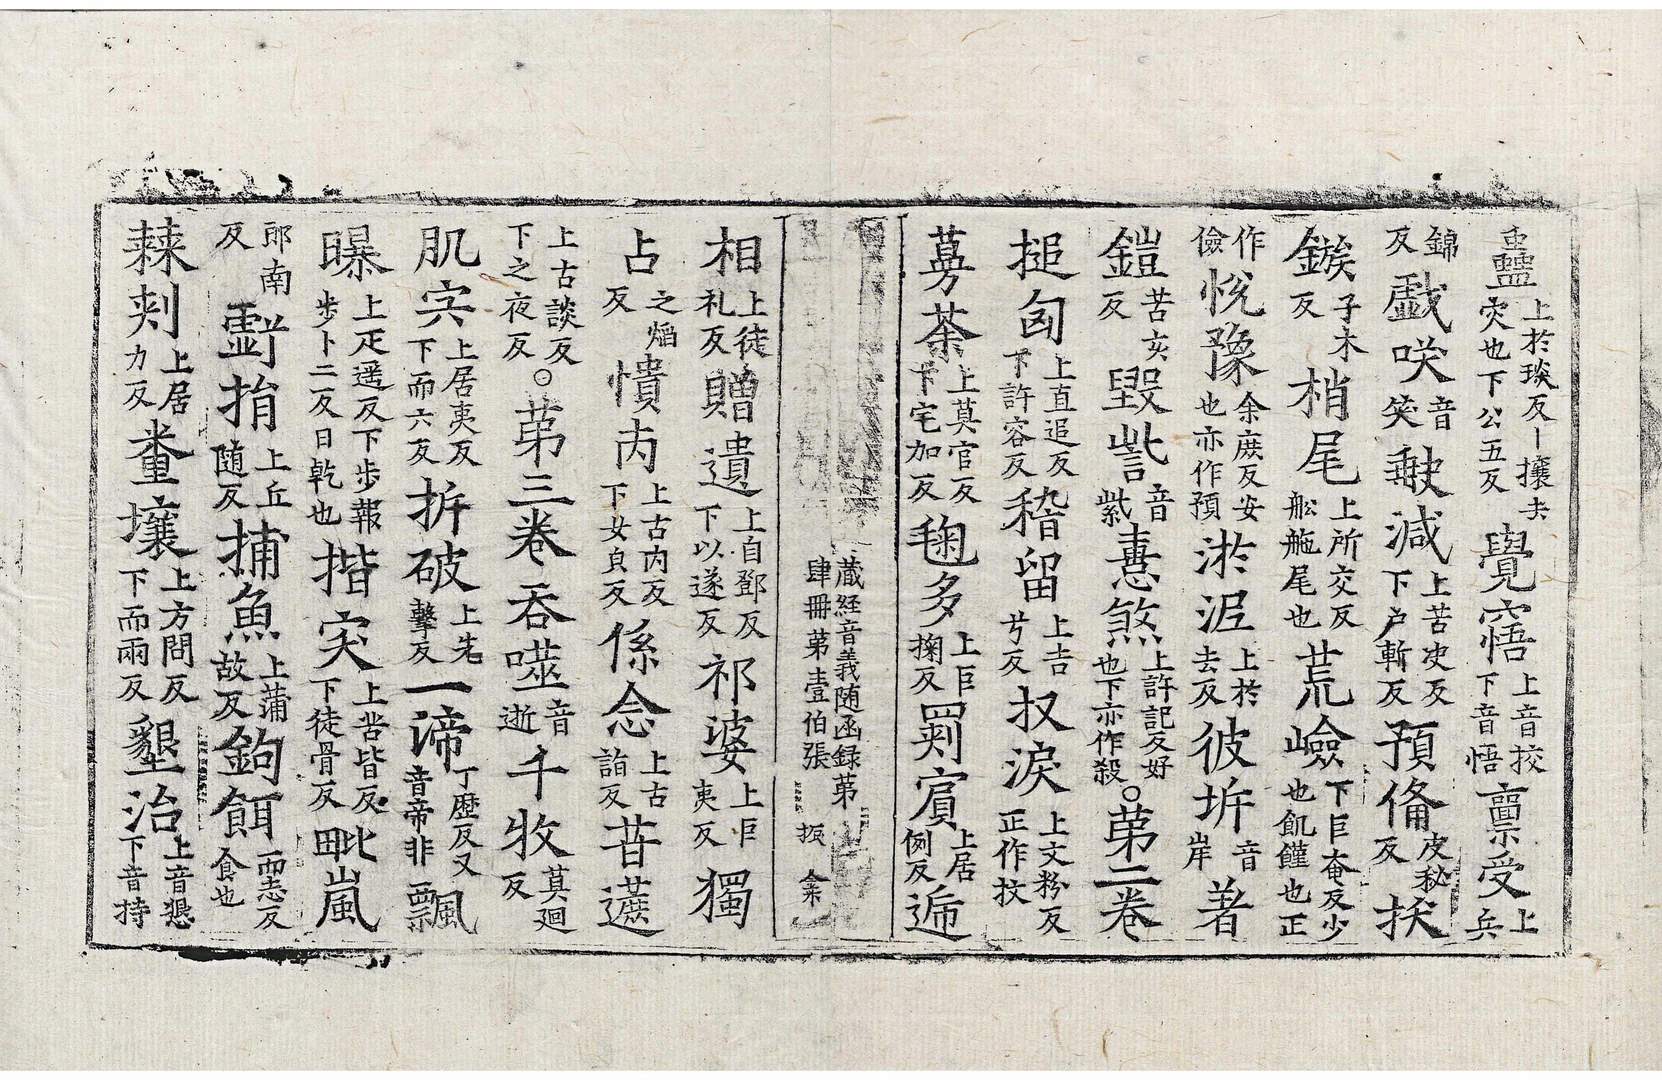 蠱上於琰反丨攘夫灾也下公五反覺寤上音挍下音悟禀受上兵
錦反戯咲音笑㱟減上苦吏反下户斬反預俻皮秘反挨
鏃子木反梢尾上所交反舩舵尾也荒嶮下巨奄反少也飢饉也正
作儉悅豫余庶反安也亦作預淤泥上於去反彼坼音岸著
鎧苦亥反毀訾音紫憙煞上許記反好也下亦作殺○第二卷
搥匈上直追反下許容反稽留上古兮反抆淚上文粉反正作抆
蔓荼上莫官反下宅加反毱多上巨掬反罽賔上居例反遞
藏経音義随函録第
肆冊第壹伯張 振
相上徒礼反贈遺上自鄧反下以遂反祁婆上巨夷反獨
占之焰反憒丙上古內反下女皃反係念上古詣反苷蔗
上古談反下之夜反○第三卷吞噬音逝千牧莫廻反
肌宍上居夷反下而六反拆破上先擊反一諦丁歴反又音帝非飄
曝上疋遥反下步報步卜二反日乾也揩突上苦皆反下徒骨反毗嵐
郎南反霻掯上丘随反捕魚上蒲故反鉤餌而志反食也
棘刾上居力反糞壤上方問反下而兩反墾治上音懇下音持